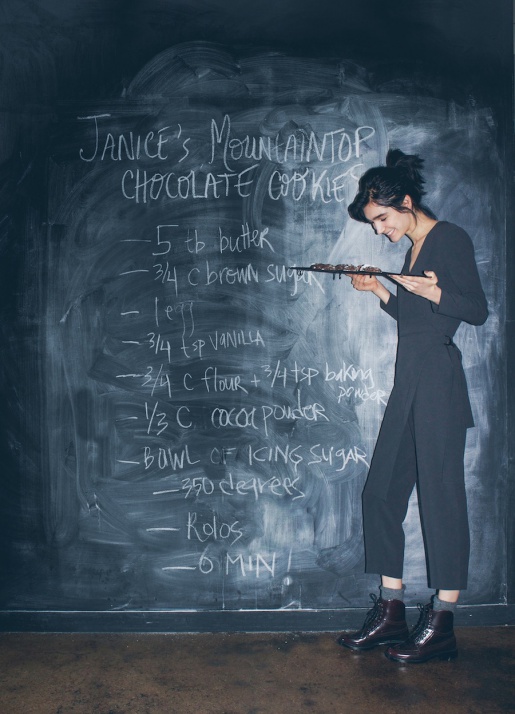 JANICE'S MOUNTAINTOP
CHOCOLATE COOKIES
— 5 tb butter
— 3/4 c brown sugar
— 1 egg
— 3/4 tsp VANILLA
— 3/4 c flour + 3/4 tsp baking
powder
— 1/3 c cocoa powder
— BOWL OF ICING SUGAR
— 350 degrees
— Rolos
— 6 MIN!